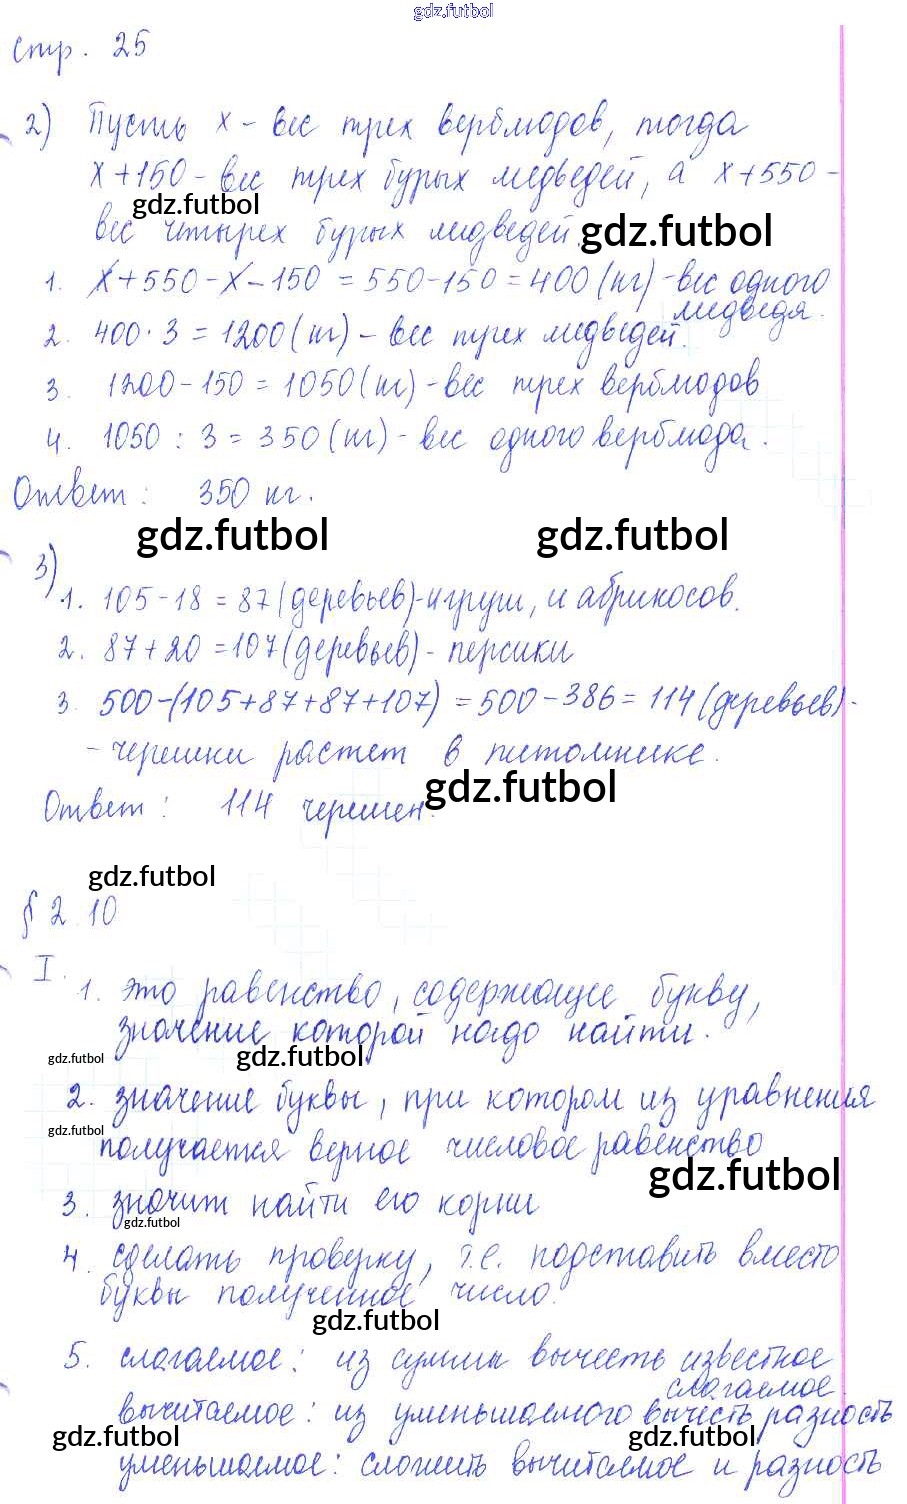 gdz.futbol
стр. 25
2) Пусть x - вес трех верблюдов, тогда
x+150 - вес трех бурых медведей, а x+550 -
gdz.futbol
вес четырех бурых медведей.
gdz.futbol
1. x+550-x-150 = 550-150 = 400 (кг) - вес одного
медведя.
2. 400·3 = 1200 (кг) - вес трех медведей.
3. 1200-150 = 1050 (кг) - вес трех верблюдов
4. 1050 : 3 = 350 (кг) - вес одного верблюда.
Ответ: 350 кг.
gdz.futbol gdz.futbol
3)
1. 105-18 = 87 (деревьев) - игруш, и абрикосов.
2. 87+20 = 107 (деревьев) - персики
3. 500-(105+87+87+107) = 500-386 = 114 (деревьев) -
- черешни растет в питомнике.
gdz.futbol
Ответ: 114 черешен.
gdz.futbol
§ 2.10
I.
1. это равенство, содержащее букву,
значение которой надо найти.
gdz.futbol gdz.futbol
2. значение буквы, при котором из уравнения
gdz.futbol
получается верное числовое равенство
gdz.futbol
3. значит найти его корни
gdz.futbol
4. сделать проверку, т.е. подставить вместо
буквы полученное число.
gdz.futbol
5. слагаемое: из суммы вычесть известное
слагаемое.
вычитаемое: из уменьшаемого вычесть разность
gdz.futbol gdz.futbol
уменьшаемое: сложить вычитаемое и разность